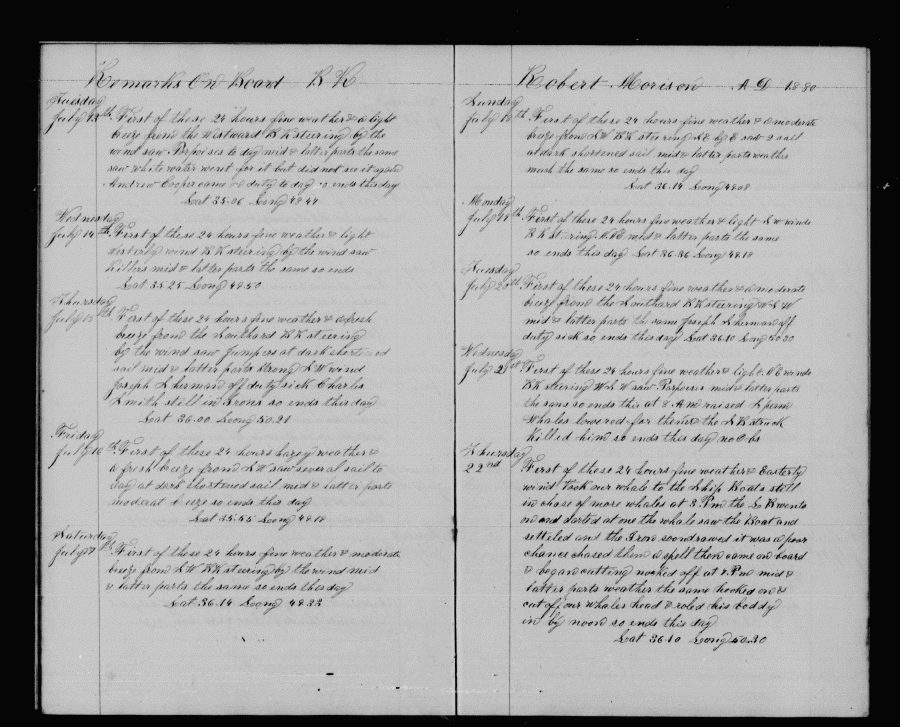 Remarks On Board B K
Tuesday
July 13th First of these 24 hours fine weather & a light
breeze from the Westward B K steering by the
wind saw Porpoises to day mid & latter parts the same
saw white water went for it but did not see it again
Andrew Cooper came on duty to day so ends this day
Lat 35.06 Long 49.44
Wednesday
July 14th First of these 24 hours fine weather & light
Westerly wind B K steering by the wind saw
Killers mid & latter parts the same so ends
Lat 35.25 Long 49.50
Thursday
July 15th First of these 24 hours fine weather & a fresh
breeze from the Southard B K steering
by the wind saw Jumpers at dark shortened
sail mid & latter parts strong S W wind
Joseph Sherman off duty sick Charles
Smith still in Irons so ends this day
Lat 36.00 Long 50.21
Friday
July 16th First of these 24 hours hazey weather &
a fresh breeze from S W saw several sail to
day at dark shortened sail mid & latter parts
moderat breeze so ends this day
Lat 35.55 Long 49.19
Saturday
July 17th First of these 24 hours fine weather & moderate
breeze from S W B K steering by the wind mid
& latter parts the same so ends this day
Lat 36.14 Long 49.23
Robert Morison A D 1880
Sunday
July 18th First of these 24 hours fine weather & a moderate
breeze from S W B K steering S E by E saw a sail
at dark shortened sail mid & latter parts weather
much the same so ends this day
Lat 36.14 Long 49.08
Monday
July 19th First of these 24 hours fine weather & light S W winds
B K steering mid & latter parts the same
so ends this day Lat 36.36 Long 49.18
Tuesday
July 20th First of these 24 hours fine weather & a moderate
breeze from the Southard B K steering W S W
mid & latter parts the same Joseph Sherman off
duty sick so ends this day Lat 36.10 Long 50.30
Wednesday
July 21st First of these 24 hours fine weather & light winds
B K steering W S W saw Porpoises mid & latter parts
the same so ends this at 8 A m raised Sperm
Whales lowered for them & the S B struck
killed him so ends this day no Obs
Thursday
22nd First of these 24 hours fine weather & Easterly
wind took our whale to the Ship Boats still
in chase of more whales at 3 P m the L B wento
on and darted at one the whale saw the Boat and
setteled and the Iron soon drawed it was a poor
chance chased them a spell then came on board
& began cutting nocked off at 7 P m mid &
latter parts weather the same hooked on &
cut off our whales head & roled his boddy
in by noon so ends this day
Lat 36.10 Long 50.30